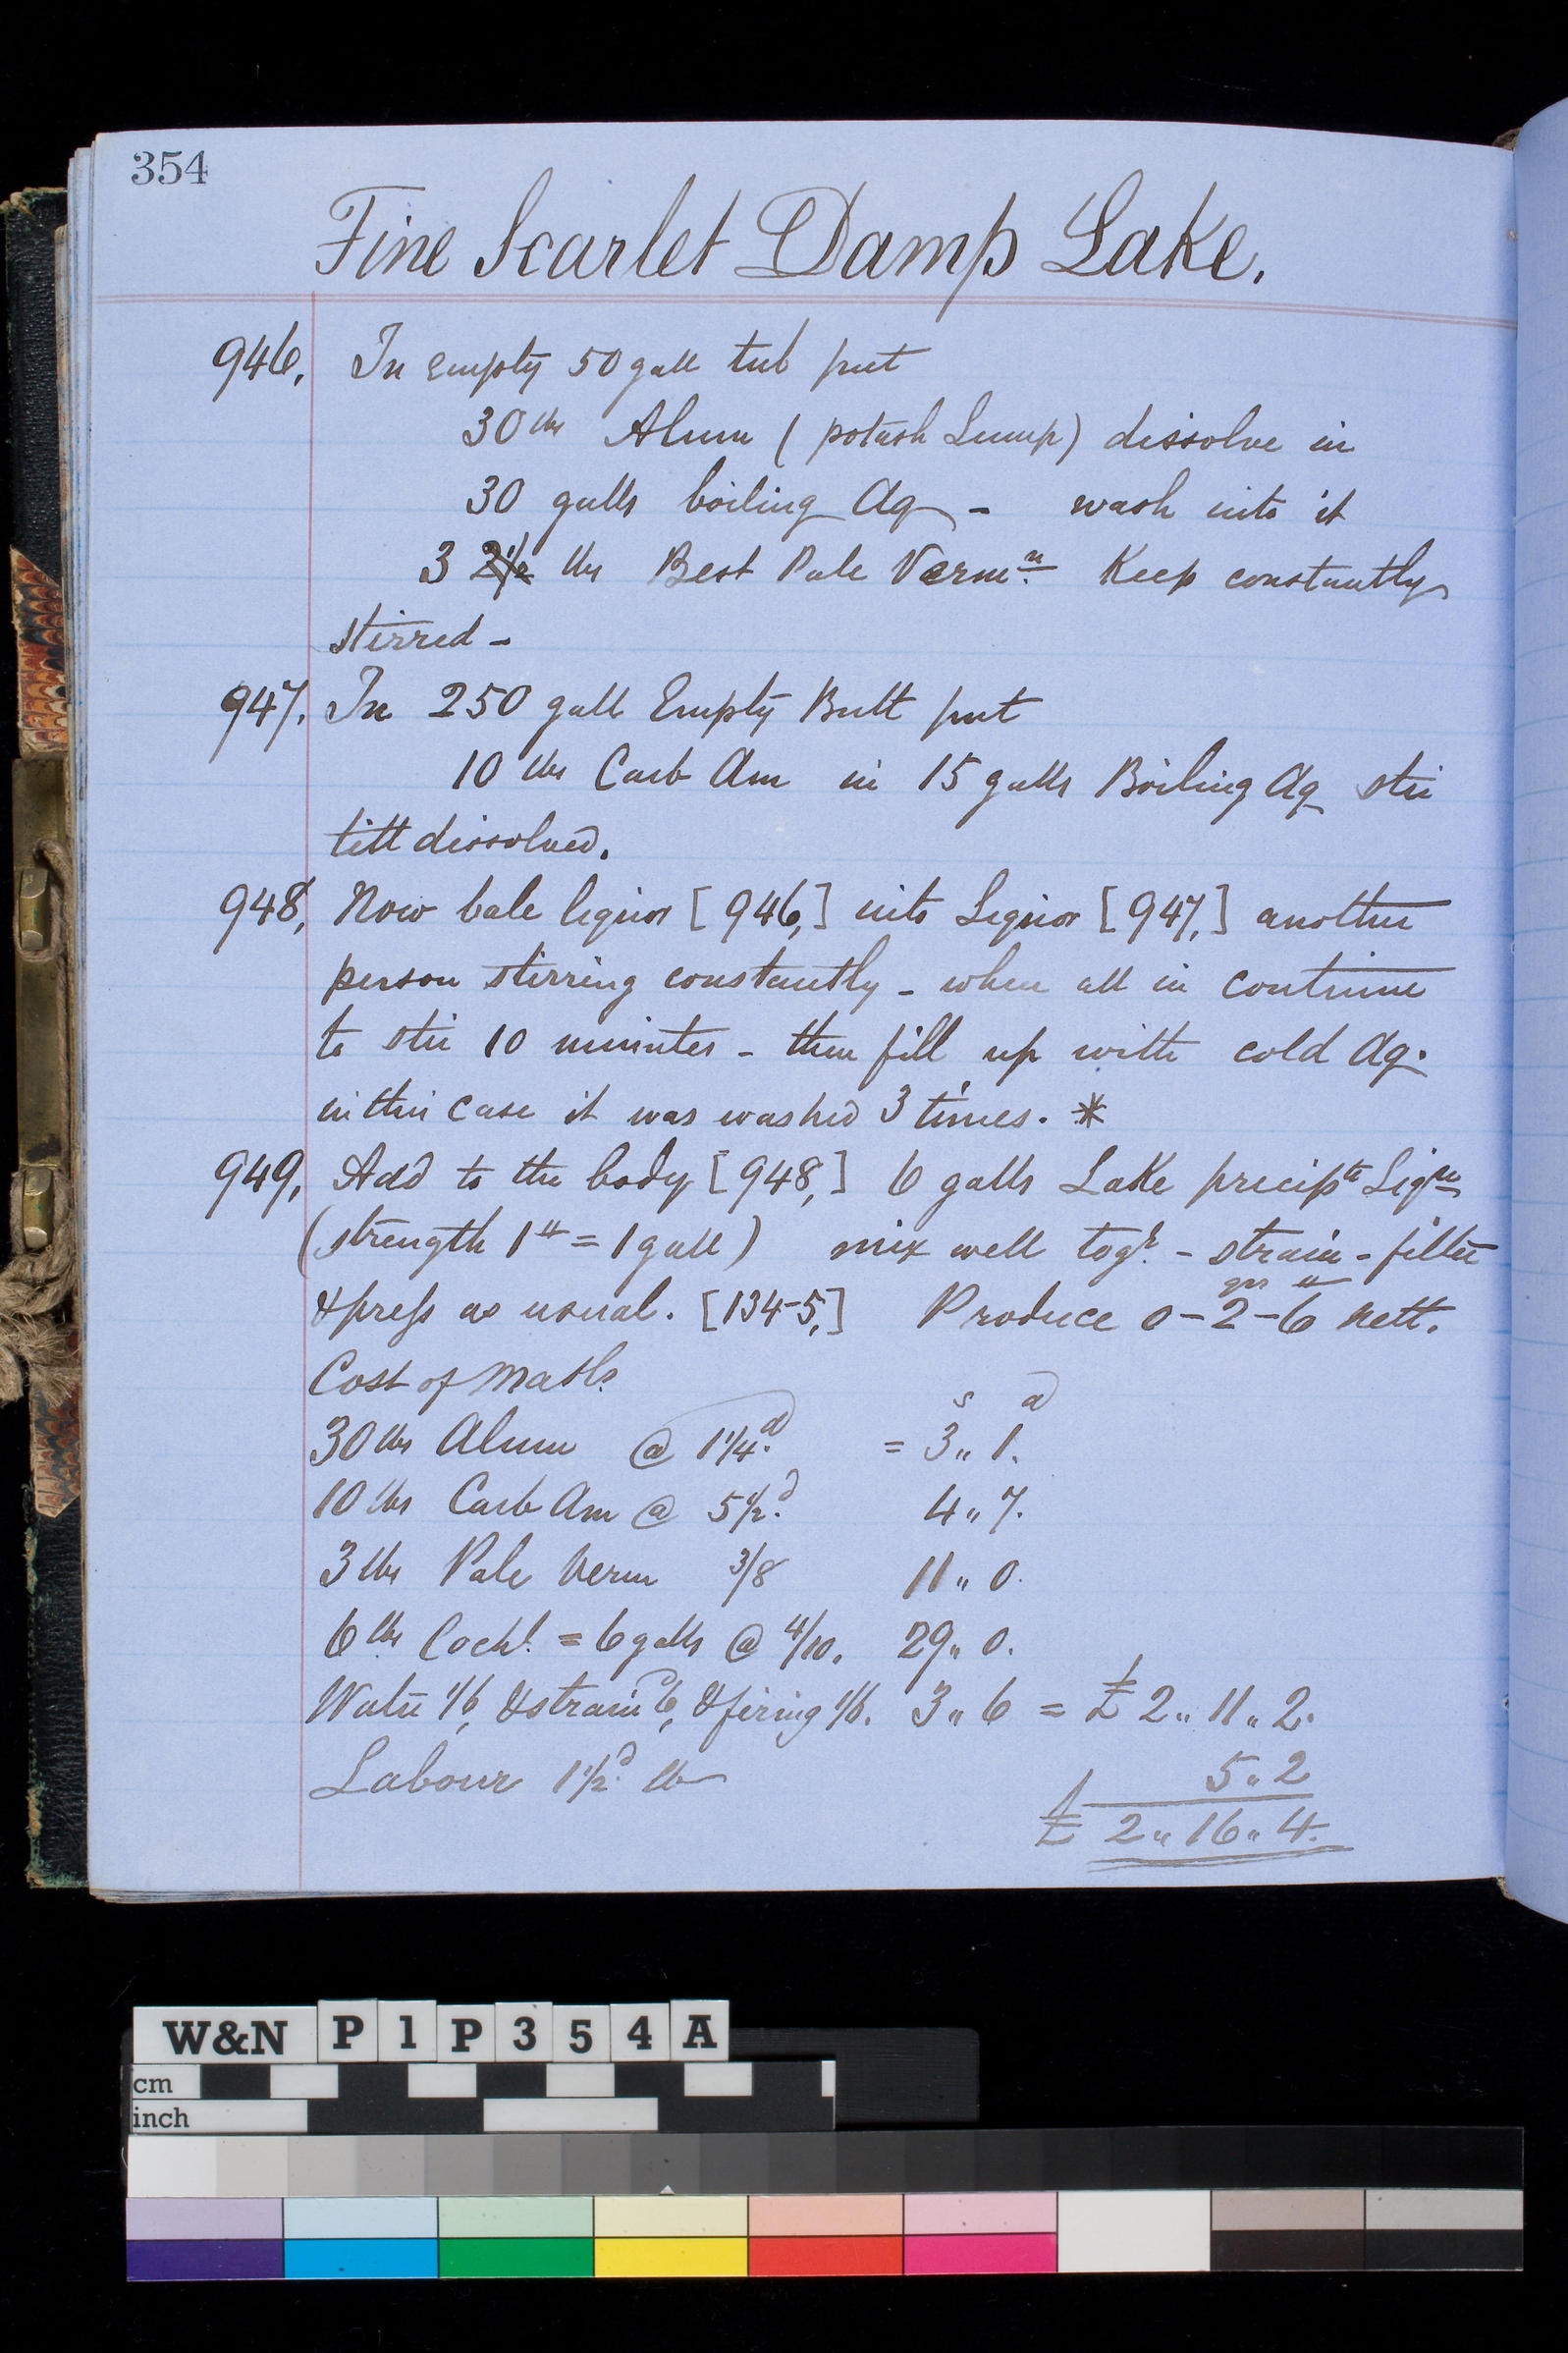 354
Fine Scarlet Damp Lake.
946, In empty 50 gall tub put
30 lbs Alum ( potash Lump) dissolve in
30 galls boiling Aq - wash into it
3 2½ lbs Best Pale Vermn. Keep constantly
stirred -
947. In 250 gall Empty Butt put
10 lbs Carb Am in 15 galls Boiling Aq stir
till dissolved.
948, Now bale liquor [946,] into Liquor [947,] another
person stirring constantly - when all in continue
to stir 10 minutes - then fill up with cold Aq.
in this case it was washed 3 times. *
949, Add to the body [948,] 6 galls Lake precipte Liqre
(strength 1lb = 1 gall) mix well togr. - strain - filter
& press as usual. [134-5,] Produce 0 - 2 - 6 nett.
qrs lb
Cost of Matls.
s d
30 lbs Alum @ 1¼d. = 3 " 1.
10 lbs Carb Am @ 5½d. 4 " 7.
3 lbs Pale Verm 3/8 11 " 0.
6 lbs Cochl. = 6 galls @ 4/10. 29 " 0.
Water 1/6, & strain 6d, & firing 1/6. 3 " 6 = £ 2 " 11 " 2.
Labour 1½d. lb 5 " 2
£ 2 " 16 " 4.
W&N P1P354A
cm
inch